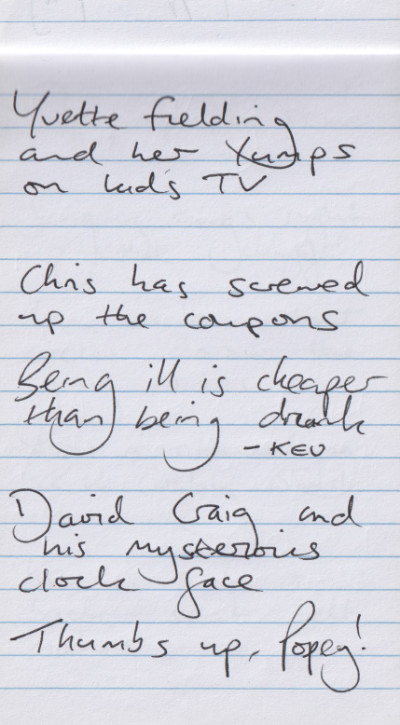 Yvette Fielding
and her Yumps
on kids TV
Chris has screwed
up the coupons
Being ill is cheaper
than being drunk
- KEV
David Craig and
his mysterious
clock face
Thumbs up, Popey!